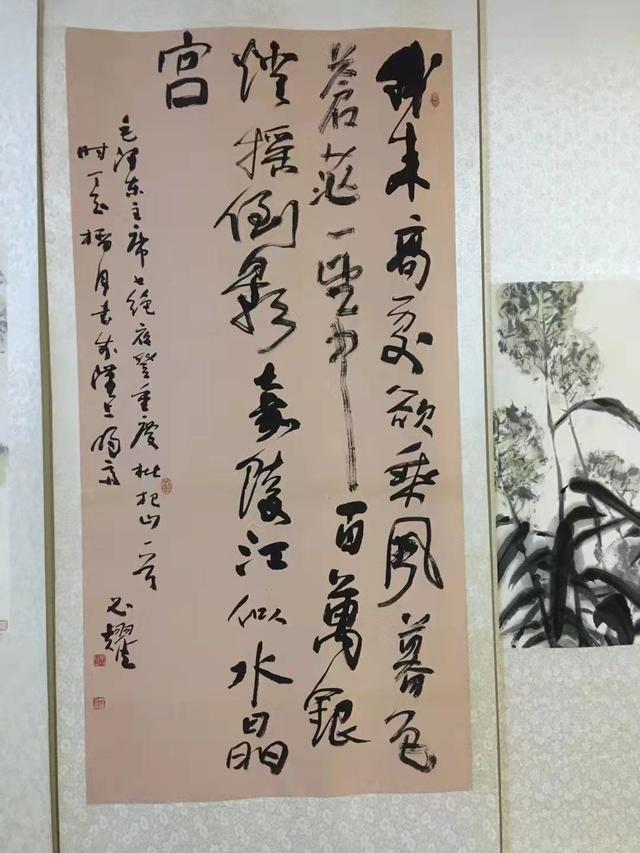 我来高处欲乘風暮色
蒼茫一望中百萬銀
燈摇倒影嘉陵江似水晶
宫
毛泽东主席七绝夜登重慶枇杷山一首
时丁亥榴月书於漢上
耀